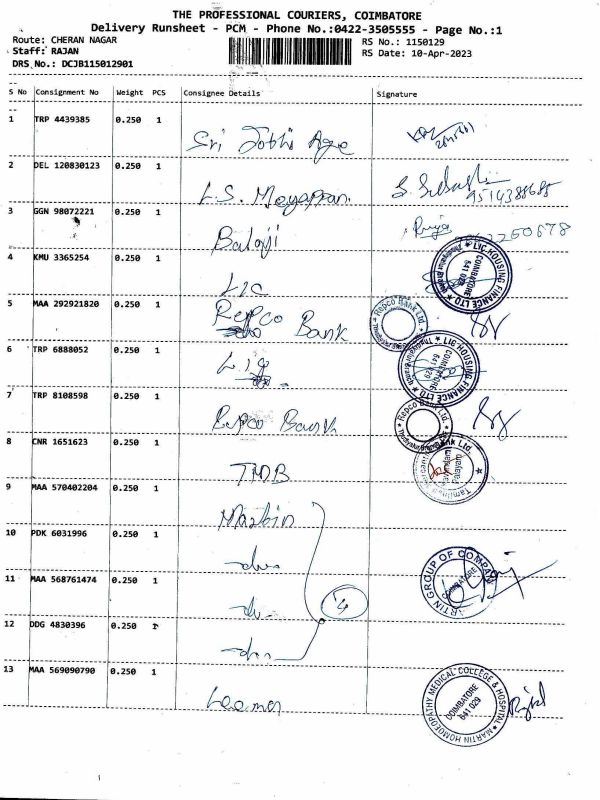 THE PROFESSIONAL COURIERS, COIMBATORE
Delivery Runsheet - PCM - Phone No.:0422-3505555 - Page No.:1
Route: CHERAN NAGAR
RS No.: 1150129
Staff: RAJAN
RS Date: 10-Apr-2023
DRS No.: DCJB115012901
S No Consignment No Weight PCS Consignee Details Signature
1 TRP 4439385 0.250 1
Sri Jothi Age
2 DEL 120830123 0.250 1
L.S. Meyappan.
9514388685
3 GGN 98072221 0.250 1
Balaji
Priya
4 KMU 3365254 0.250 1
LIC
LIC HOUSING FINANCE LTD
COIMBATORE
641 029
5 MAA 292921820 0.250 1
Repco Bank
Repco Bank Ltd.
6 TRP 6888052 0.250 1
LIC HOUSING FINANCE LTD
COIMBATORE
7 TRP 8108598 0.250 1
Repco Bank
Repco Bank Ltd.
8 CNR 1651623 0.250 1
TMB
9 MAA 570402204 0.250 1
Martin
10 PDK 6031996 0.250 1
-do-
11 MAA 568761474 0.250 1
-do-
4
MARTIN GROUP OF COMPAN
COIMBATORE
12 DDG 4830396 0.250 1
-do-
13 MAA 569090790 0.250 1
MARTIN HOMOEOPATHY MEDICAL COLLEGE & HOSPITAL
COIMBATORE
641 029